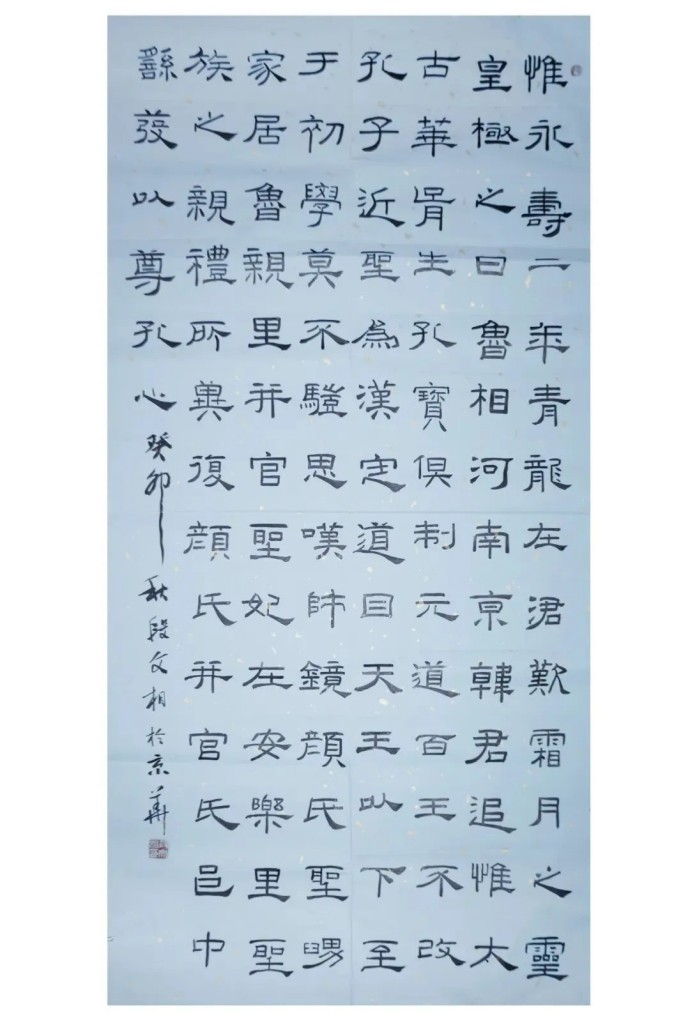 惟永壽二年青龍在涒歎霜月之靈
皇極之日魯相河南京韓君追惟太
古華胥生孔寶俱制元道百王不改
孔子近聖為漢定道自天王以下至
于初學莫不驥思嘆師鏡顏氏聖舅
家居魯親里并官聖妃在安樂里聖
族之親禮所異復顏氏并官氏邑中
繇發以尊孔心癸卯秋段文相於京華